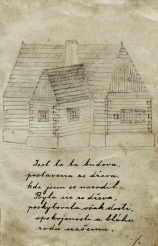 Jest to ta budova,
postavena ze dřeva,
kde jsem se narodil.
Byla sic ze dřeva,
poskytovala však dosti
spokojenosti a blaha
rodu našemu.